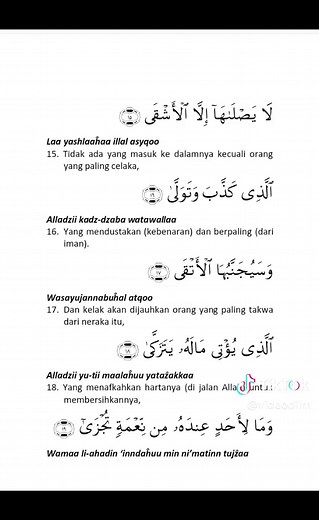 لَا يَصْلَىٰهَآ إِلَّا ٱلْأَشْقَى ١٥
Laa yashlaaĥaa illal asyqoo
15. Tidak ada yang masuk ke dalamnya kecuali orang
yang paling celaka,
ٱلَّذِى كَذَّبَ وَتَوَلَّىٰ ١٦
Alladzii kadz-dzaba watawallaa
16. Yang mendustakan (kebenaran) dan berpaling (dari
iman).
وَسَيُجَنَّبُهَا ٱلْأَتْقَى ١٧
Wasayujannabuĥal atqoo
17. Dan kelak akan dijauhkan orang yang paling takwa
dari neraka itu,
ٱلَّذِى يُؤْتِى مَالَهُۥ يَتَزَكَّىٰ ١٨
Alladzii yu-tii maalaĥuu yatażakkaa
18. Yang menafkahkan hartanya (di jalan Allah) untuk
membersihkannya,
وَمَا لِأَحَدٍ عِندَهُۥ مِن نِّعْمَةٍ تُجْزَىٰٓ ١٩
Wamaa li-ahadin ‘inndaĥuu min ni’matinn tujżaa